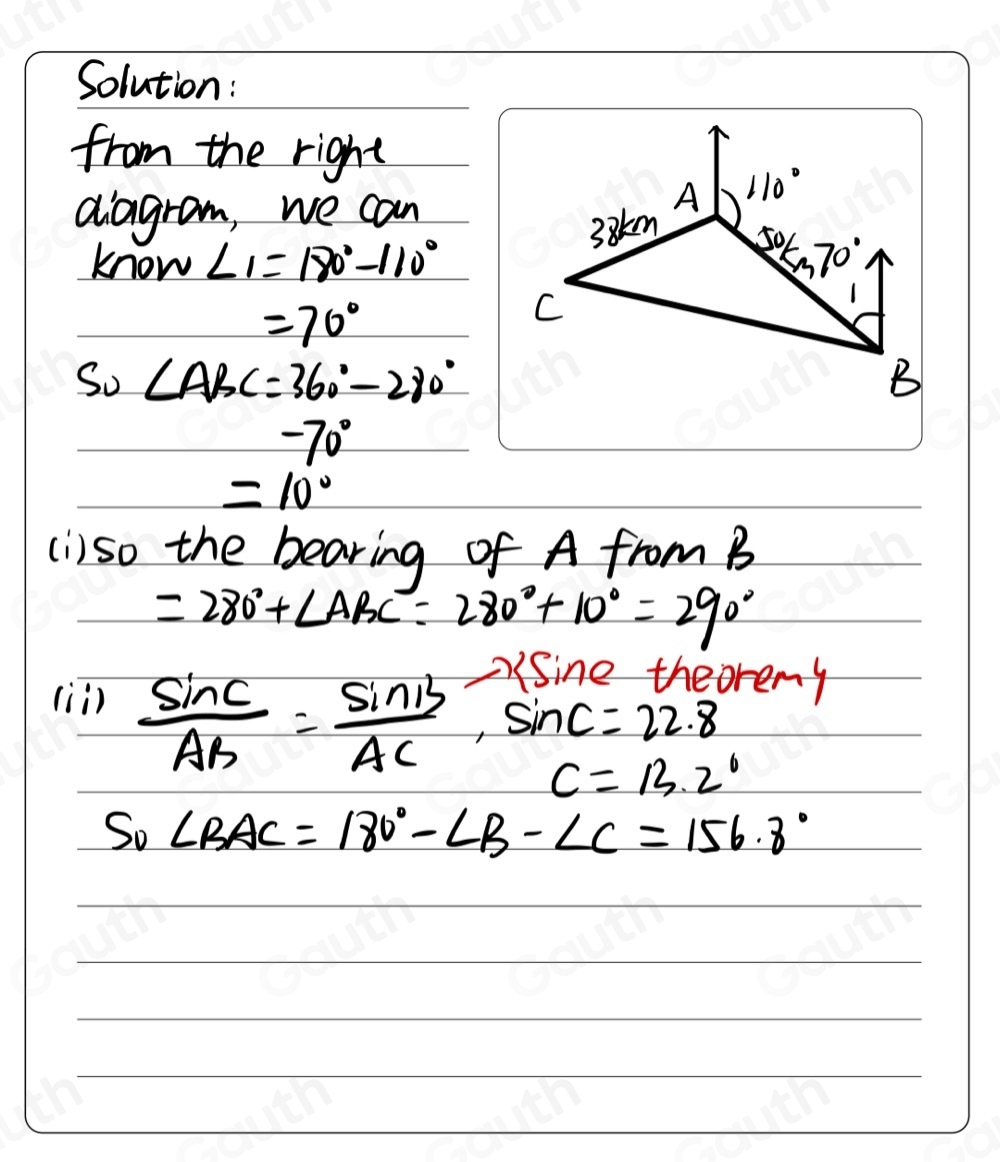 Solution:
from the right
diagram, we can
know ∠1 = 180° - 110°
= 70°
So ∠ABC = 360° - 280°
- 70°
= 10°
A
110°
38km
50km
70°
1
C
B
(i) so the bearing of A from B
= 280° + ∠ABC = 280° + 10° = 290°
(ii) sinC/AB = sinB/AC , sinC = 22.8
{Sine theorem}
C = 13.2°
So ∠BAC = 180° - ∠B - ∠C = 156.8°
Gauth